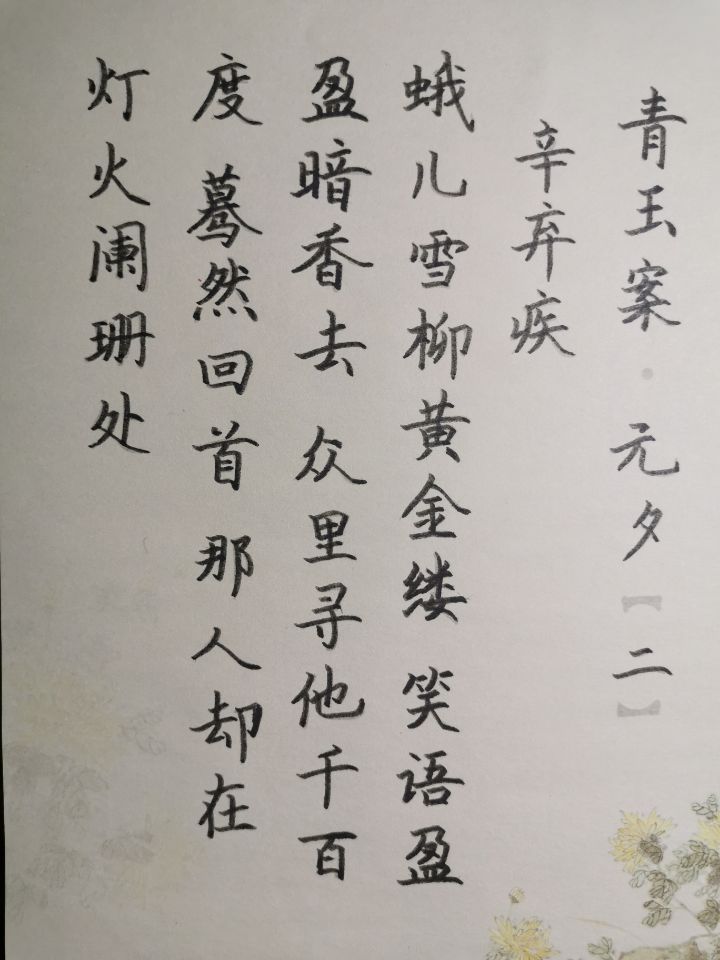 青玉案·元夕【二】
辛弃疾
蛾儿雪柳黄金缕 笑语盈
盈暗香去 众里寻他千百
度 蓦然回首 那人却在
灯火阑珊处